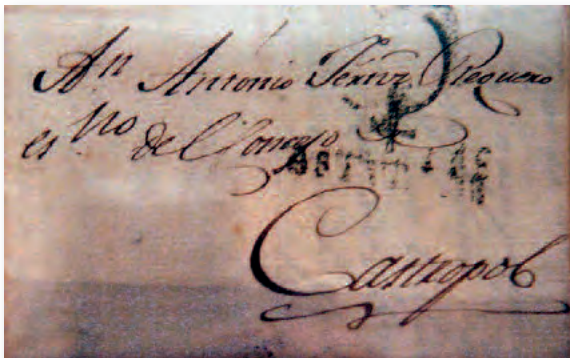 An Antonio Fernz Reguero
es no de Concejo
ASTURIAS
Castropol